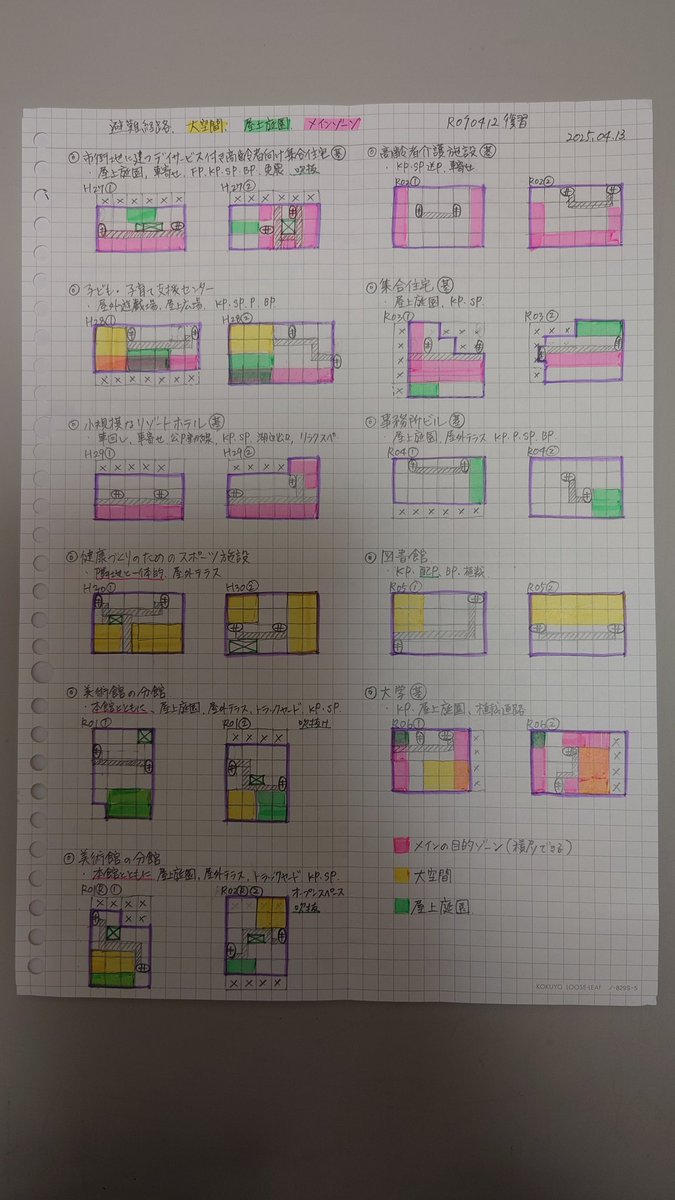 避難経路、大空間、屋上庭園、メインゾーン
R070412 復習
2025.04.13
市街地に建つデイサービス付き高齢者向け集合住宅 基
・屋上庭園、車寄せ、FP、KP、SP、BP、免震、吹抜
H27① H27②
高齢者介護施設 基
・KP、SP 送P、車寄せ
R02① R02②
子ども・子育て支援センター
・屋外遊戯場、屋上広場、KP、SP、P、BP
H28① H28②
集合住宅 基
・屋上庭園、KP、SP
R03① R03②
小規模なリゾートホテル 基
・車回し、車寄せ
H29① H29②
事務所ビル 基
・屋上庭園、屋外テラス KP、P、SP、BP
R04① R04②
健康づくりのためのスポーツ施設
・隣地と一体的、屋外テラス
H30① H30②
図書館
・KP、配P、BP、植栽
R05① R05②
美術館の分館
・本館とともに、屋上庭園、屋外テラス、トラックヤード KP、SP
吹抜け
R01① R01②
大学 基
・KP、屋上庭園、植栽、通路
R06① R06②
メインの目的ゾーン(積層できる)
大空間
屋上庭園
美術館の分館
・本館とともに 屋上庭園、屋外テラス、トラックヤード KP、SP
オープンスペース
吹抜
KOKUYO LOOSE-LEAF ノ-829S-5